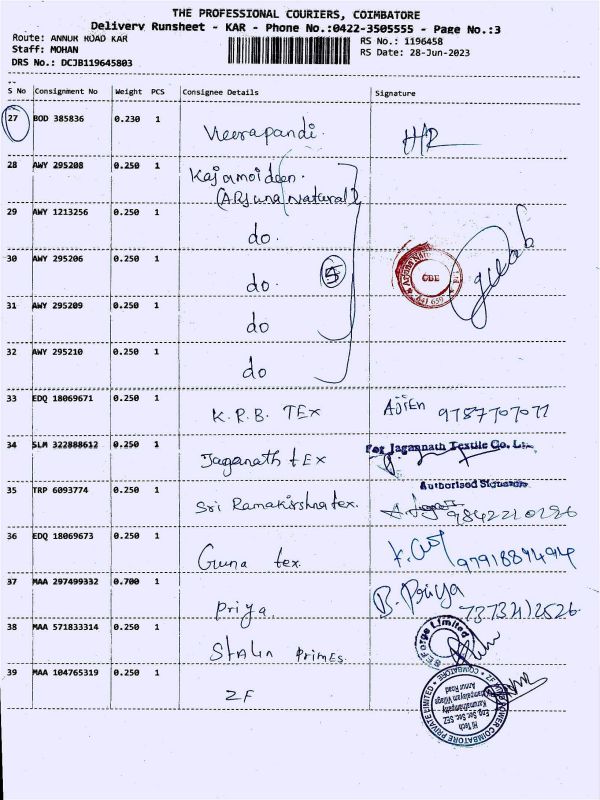 THE PROFESSIONAL COURIERS, COIMBATORE
Delivery Runsheet - KAR - Phone No.:0422-3505555 - Page No.:3
Route: ANNUR ROAD KAR
RS No.: 1196458
Staff: MOHAN
RS Date: 28-Jun-2023
DRS No.: DCJB119645803
S No Consignment No Weight PCS Consignee Details Signature
27 BOD 385836 0.230 1 Veerapandi. H/R
28 AWY 295208 0.250 1 Kajamoideen.
(Arjuna Natural)
29 AWY 1213256 0.250 1 do.
30 AWY 295206 0.250 1 do. 5
CBE
641 659
31 AWY 295209 0.250 1 do
32 AWY 295210 0.250 1 do
33 EDQ 18069671 0.250 1 K.R.B. TEX
34 SLM 322888612 0.250 1 Jaganath tEx For Jagannath Textile Co. Ltd.,
Authorised Signatory
35 TRP 6093774 0.250 1 Sri Ramakrishna tex. 9842220296
36 EDQ 18069673 0.250 1 Guna tex. 9791889494
37 MAA 297499332 0.700 1 Priya. B. Priya
38 MAA 571833314 0.250 1 Stalin Primes. Forge Limited
COIMBATORE
39 MAA 104765319 0.250 1 ZF
COIMBATORE PRIVATE LIMITED
Hi Tech
Eng. Sec. SEZ
Annur Road